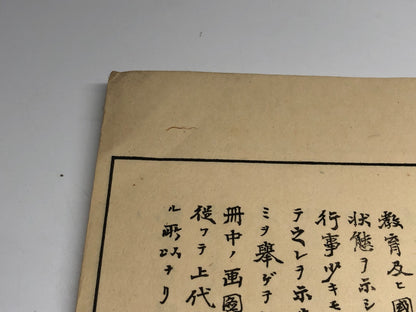 教育及ヒ國
状態ヲ示シ
行事少キモ
テ之レヲ示
ミヲ擧ゲテ
冊中ノ画図
従ツテ上代
ル所ナリ